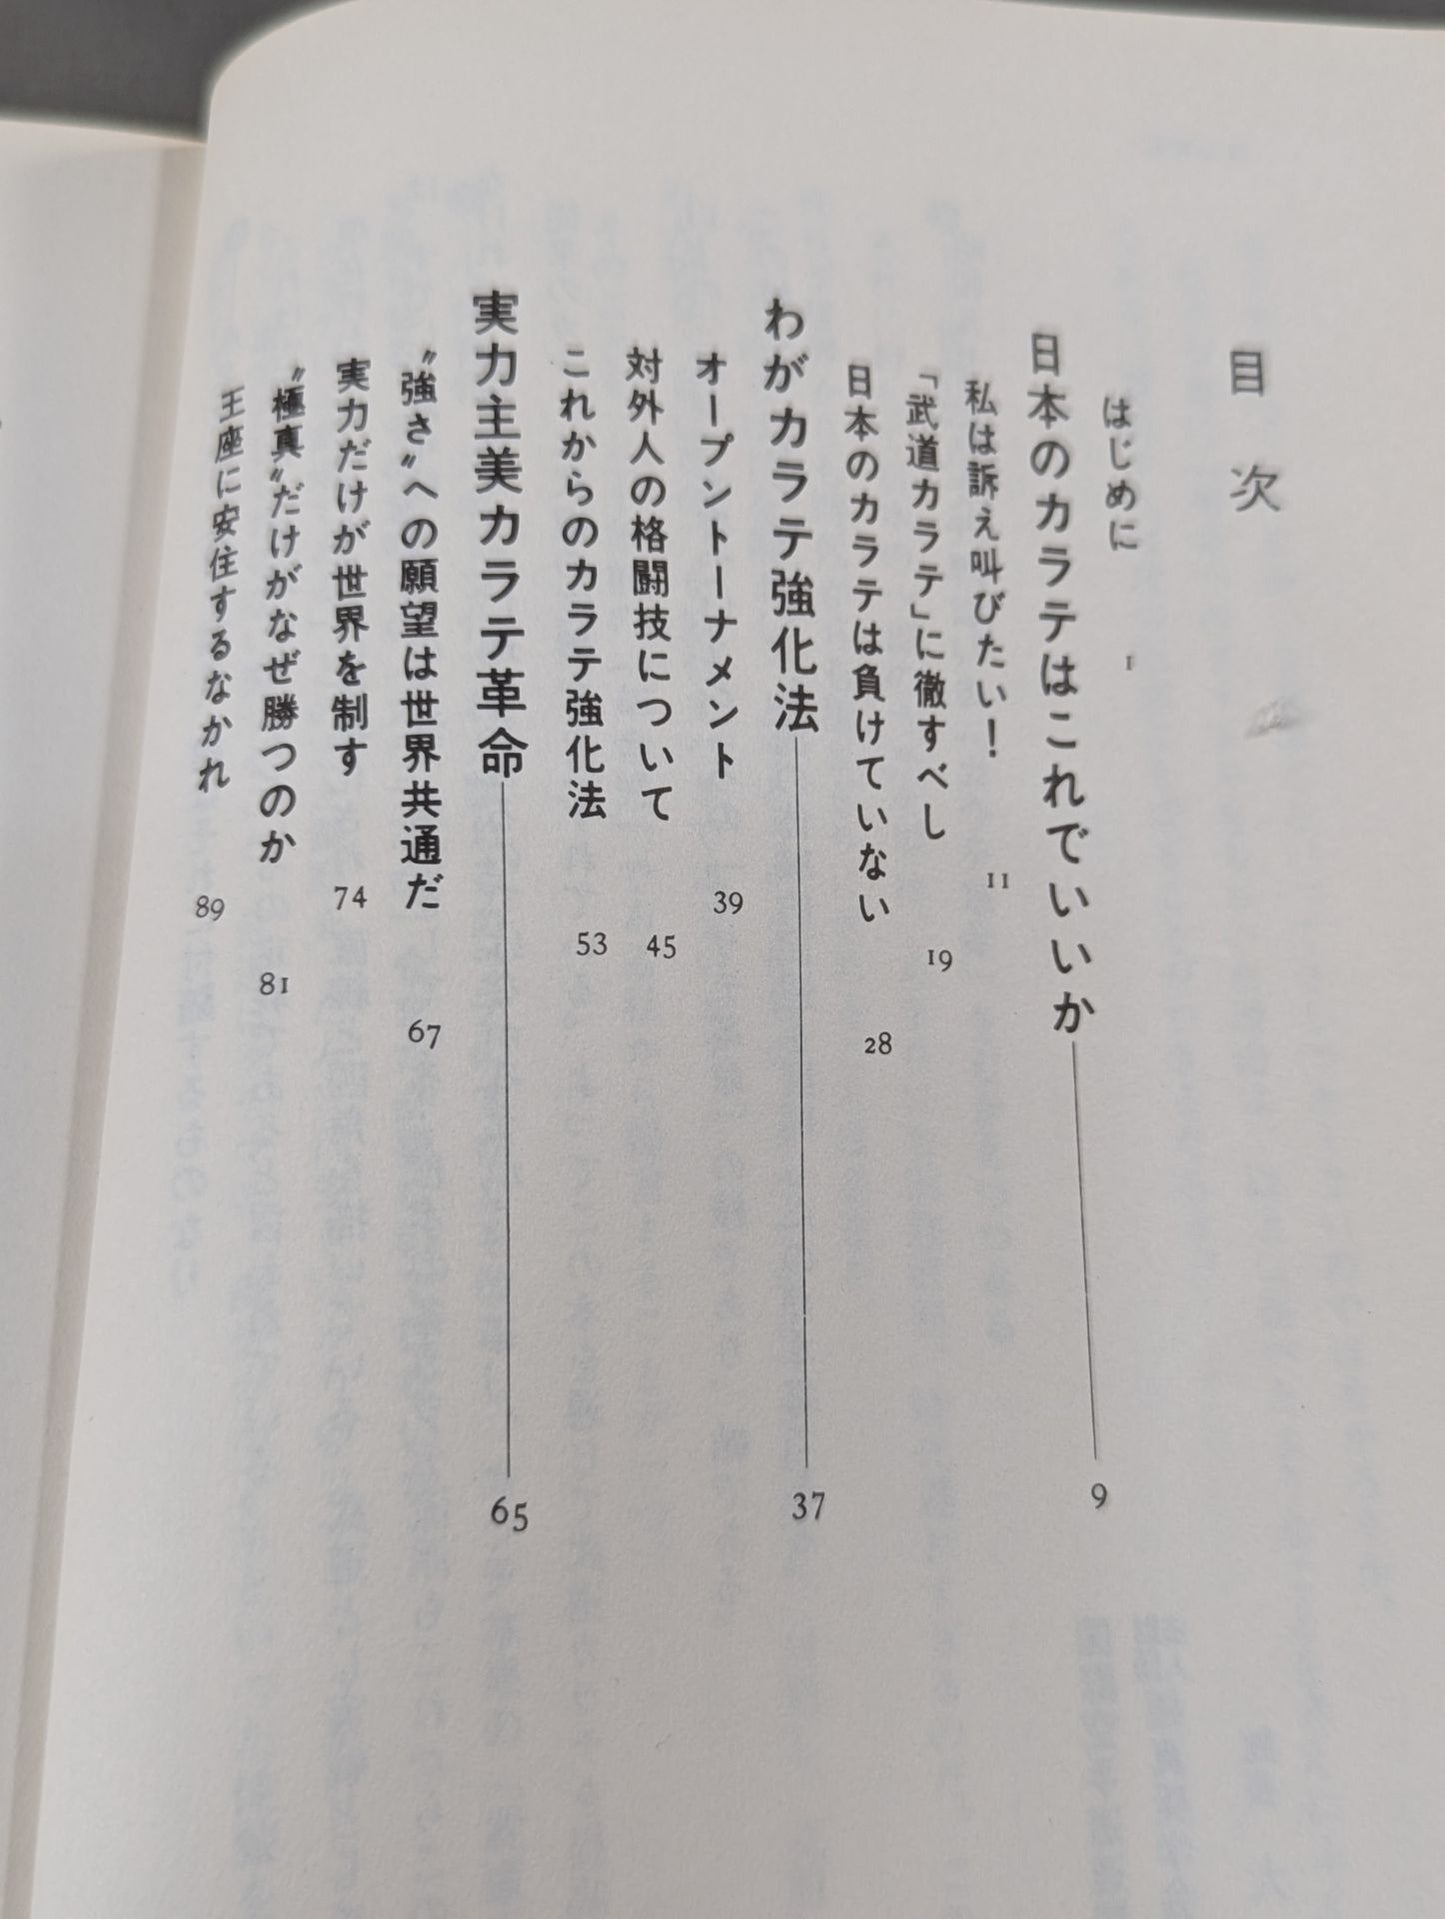 目次
はじめに 1
日本のカラテはこれでいいか 9
私は訴え叫びたい！ 11
「武道カラテ」に徹すべし 19
日本のカラテは負けていない 28
わがカラテ強化法 37
オープントーナメント 39
対外人の格闘技について 45
これからのカラテ強化法 53
実力主美カラテ革命 65
〝強さ〟への願望は世界共通だ 67
実力だけが世界を制す 74
〝極真〟だけがなぜ勝つのか 81
王座に安住するなかれ 89